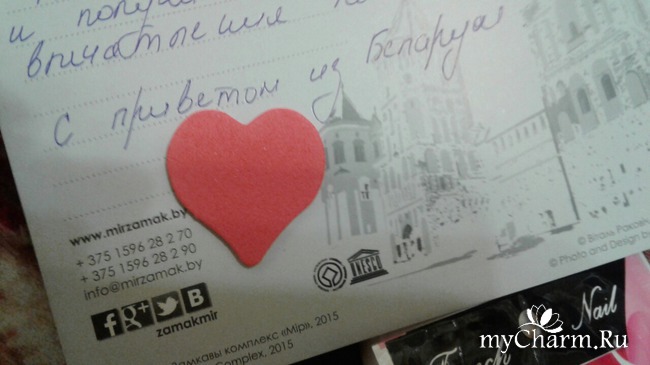 и получ
впечатления
с приветом из Беларуси
www.mirzamak.by
+ 375 1596 28 2 70
+ 375 1596 28 2 90
info@mirzamak.by
f g+ B
zamakmir
UNESCO
Замкавы комплекс «Мір», 2015
Complex, 2015
© Photo and Design by
French Nail
myCharm.Ru